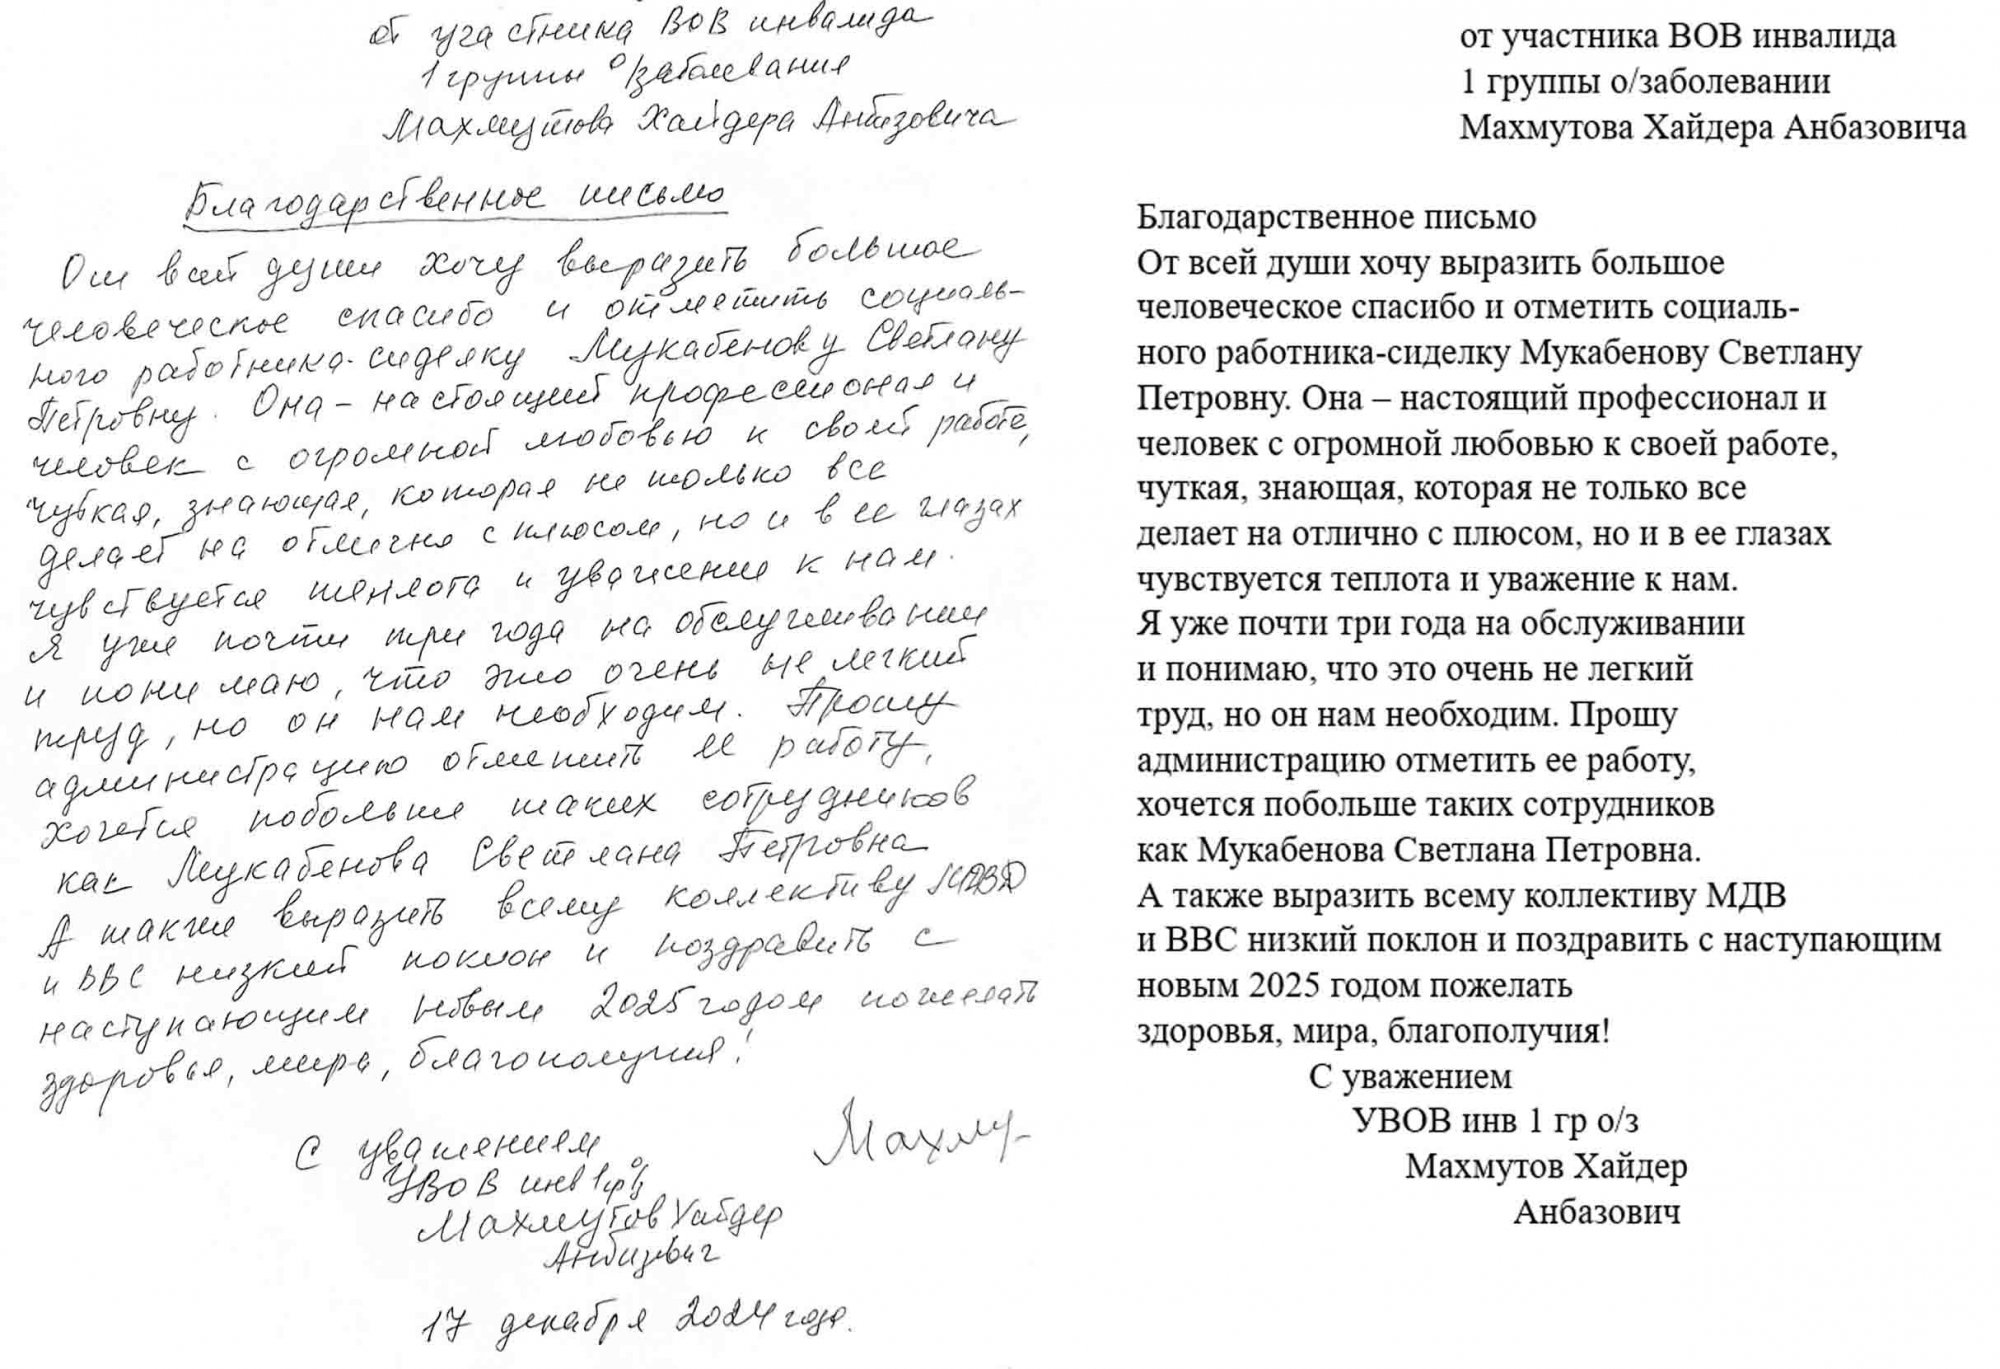 от участника ВОВ инвалида
1 группы о/заболевания
Махмутова Хайдера Анбизовича
Благодарственное письмо
От всей души хочу выразить большое
человеческое спасибо и отметить социаль-
ного работника-сиделку Мукабенову Светлану
Петровну. Она – настоящий профессионал и
человек с огромной любовью к своей работе,
чуткая, знающая, которая не только все
делает на отлично с плюсом, но и в ее глазах
чувствуется теплота и уважение к нам.
Я уже почти три года на обслуживании
и понимаю, что это очень не легкий
труд, но он нам необходим. Прошу
администрацию отметить ее работу,
хочется побольше таких сотрудников
как Мукабенова Светлана Петровна
А также выразить всему коллективу МДВ
и ВВС низкий поклон и поздравить с
наступающим новым 2025 годом пожелать
здоровья, мира, благополучия!
С уважением
Махму
УВОВ инв 1 гр о/з
Махмутов Хайдер
Анбизович
17 декабря 2024 года.
от участника ВОВ инвалида
1 группы о/заболевании
Махмутова Хайдера Анбазовича
Благодарственное письмо
От всей души хочу выразить большое
человеческое спасибо и отметить социаль-
ного работника-сиделку Мукабенову Светлану
Петровну. Она – настоящий профессионал и
человек с огромной любовью к своей работе,
чуткая, знающая, которая не только все
делает на отлично с плюсом, но и в ее глазах
чувствуется теплота и уважение к нам.
Я уже почти три года на обслуживании
и понимаю, что это очень не легкий
труд, но он нам необходим. Прошу
администрацию отметить ее работу,
хочется побольше таких сотрудников
как Мукабенова Светлана Петровна.
А также выразить всему коллективу МДВ
и ВВС низкий поклон и поздравить с наступающим
новым 2025 годом пожелать
здоровья, мира, благополучия!
С уважением
УВОВ инв 1 гр о/з
Махмутов Хайдер
Анбазович